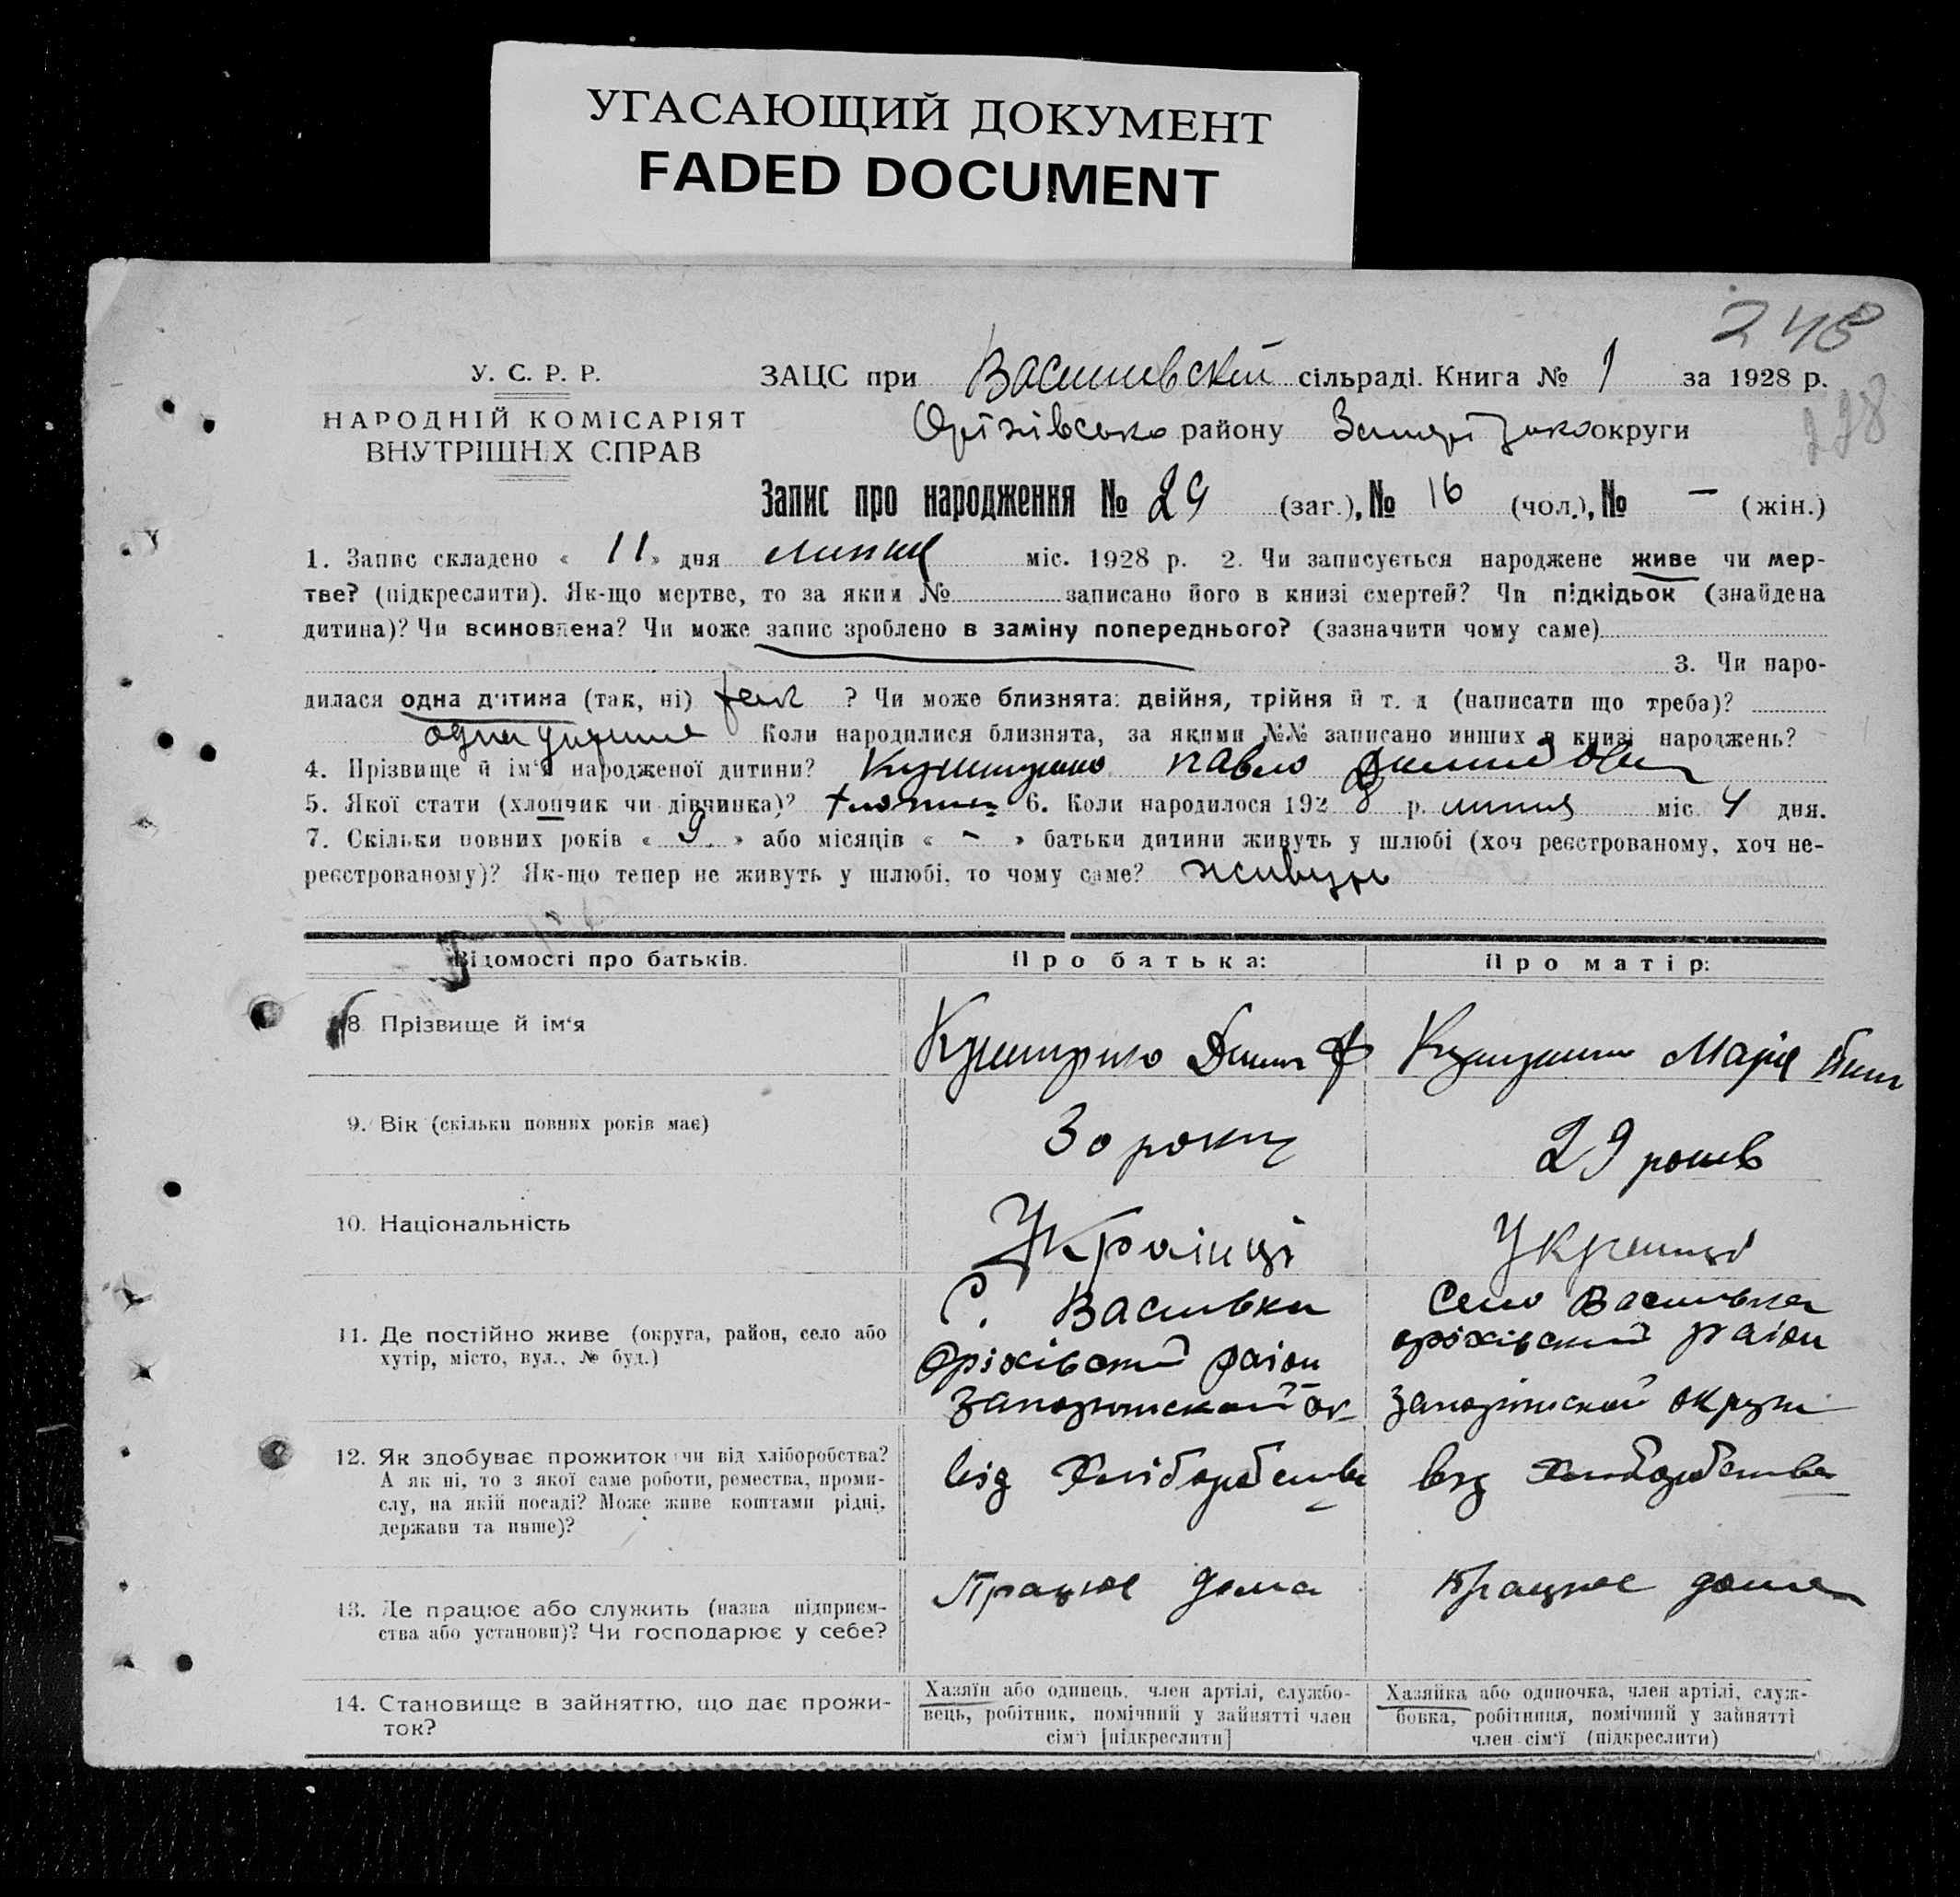 УГАСАЮЩИЙ ДОКУМЕНТ
FADED DOCUMENT
248
238
У. С. Р. Р.
НАРОДНІЙ КОМІСАРІЯТ
ВНУТРІШНІХ СПРАВ
ЗАЦС при Василивский сільраді. Книга № 1 за 1928 р.
Оріхівсько району округи
Запис про народження № 29 (заг.), № 16 (чол.), № – (жін.)
1. Запис складено « 11 » дня липня міс. 1928 р. 2. Чи записується народжене живе чи мер-
тве? (підкреслити). Як-що мертве, то за яким № записано його в книзі смертей? Чи підкідьок (знайдена
дитина)? Чи всиновлена? Чи може запис зроблено в заміну попереднього? (зазначити чому саме)
3. Чи наро-
дилася одна дитина (так, ні) так ? Чи може близнята: двійня, трійня й т. д (написати що треба)?
одна дитина Коли народилися близнята, за якими №№ записано инших в книзі народжень?
4. Прізвище й ім‘я народженої дитини? Павло
5. Якої стати (хлопчик чи дівчинка)? хлопчик 6. Коли народилося 1928 р. липня міс. 4 дня.
7. Скільки повних років « 9 » або місяців « - » батьки дитини живуть у шлюбі (хоч реєстрованому, хоч не-
реєстрованому)? Як-що тепер не живуть у шлюбі, то чому саме? живуть
Відомості про батьків. Про батька: Про матір:
8. Прізвище й ім‘я Марія
9. Вік (скільки повних років має) 30 року 29 років
10. Національність Українці Українці
11. Де постійно живе (округа, район, село або
хутір, місто, вул., № буд.)
С. Василівка
Оріхівский раіон
Село Василівка
оріхівский раіон
округи
12. Як здобуває прожиток чи від хліборобства?
А як ні, то з якої саме роботи, ремества, проми-
слу, на якій посаді? Може живе коштами рідні,
держави та инше)?
від Хліборобства від Хліборобства
13. Де працює або служить (назва підприєм-
ства або установи)? Чи господарює у себе?
Працює дома працює дома
14. Становище в зайняттю, що дає прожи-
ток?
Хазяїн або одинець, член артілі, службо-
вець, робітник, помічний у зайнятті член
сім‘ї [підкреслити]
Хазяйка або одиночка, член артілі, служ-
бовка, робітниця, помічний у зайнятті
член сім‘ї (підкреслити)